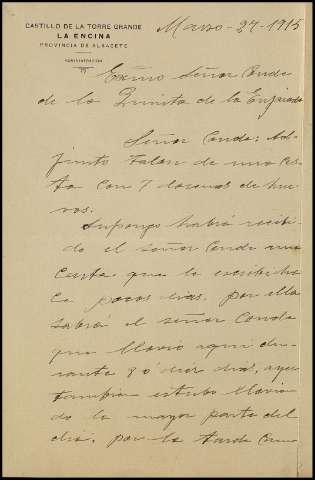 CASTILLO DE LA TORRE GRANDE
LA ENCINA
PROVINCIA DE ALBACETE
ADMINISTRACIÓN
Marzo-27-1915
Exmo Señor Conde
de la Quinta de la Enjarada
Señor Conde: Ad-
junto talon de una ces-
ta con 7 docenas de hue-
vos.
Supongo habra recibi-
do el señor Conde una
Carta que le escribi ha-
ce pocos dias, por ella
sabrá el señor Conde
que llovio aqui du-
rante 8 ó diez dias, ayer
tambien estubo llovien-
do la mayor parte del
dia, por la tarde